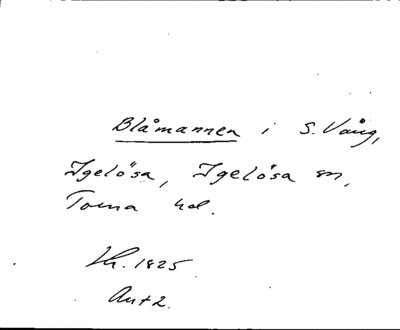 Blåmannen i S. Vång,
Igelösa, Igelösa sn,
Torna hd.
1825
Ant 2.